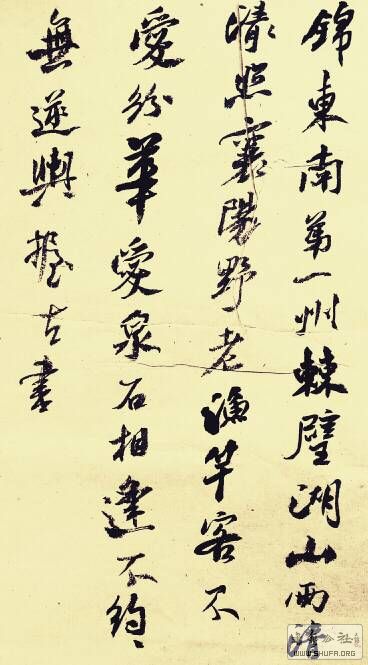 錦東南第一州棘璧湖山兩清
照襄陽野老漁竿客不
愛紛華愛泉石相逢不約〻
無逆輿握古書
WWW.SHUFA.ORG